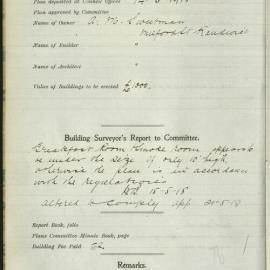 Plan deposited at Council Office
Plan approved by Committee
Name of Owner
Name of Builder
"
Name of Architect
"
Value of Buildings to be erected £
Building Surveyor's Report to Committee.
Breakfast Room Smoke room appears to
be under the size if only 10' high
otherwise the plan is in accordance
with the Regulations
15-5-18
altered to comply app 20-5-18
Report Book, folio
Plans Committee Minute Book, page
Building Fee Paid
Remarks.